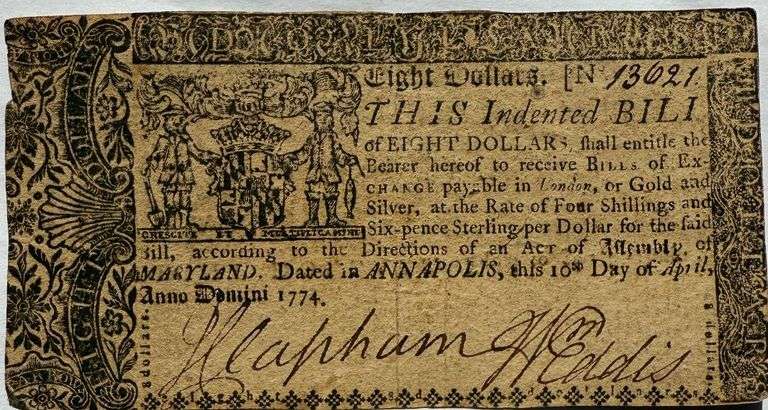 Eight Dollars. [No 13621.
THIS Indented BILL
of EIGHT DOLLARS, shall entitle the
Bearer hereof to receive BILLS of EX-
CHANGE payable in London, or Gold and
Silver, at the Rate of Four Shillings and
Six-pence Sterling per Dollar for the said
Bill, according to the Directions of an Act of Assembly of
MARYLAND. Dated in ANNAPOLIS, this 10th Day of April,
Anno Domini 1774.
J Clapham Wm Eddis
8 dollars.
8 dollars.
EIGHT
DOLLARS